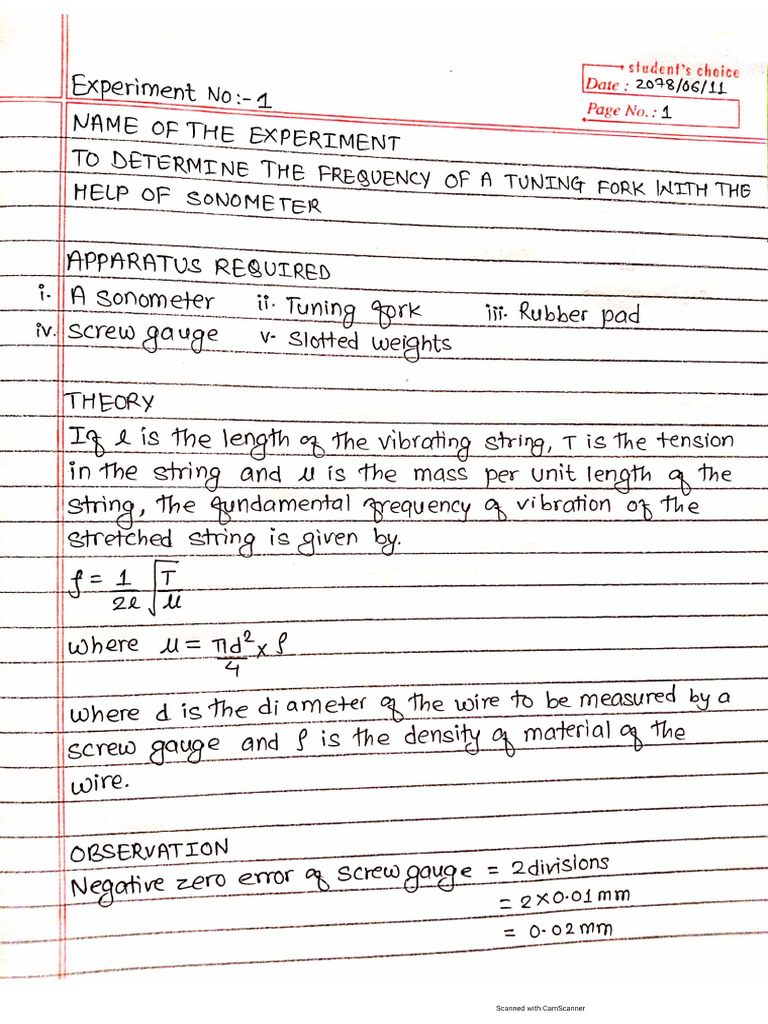 student's choice
Date : 2078/06/11
Page No. : 1
Experiment No:- 1
NAME OF THE EXPERIMENT
TO DETERMINE THE FREQUENCY OF A TUNING FORK WITH THE
HELP OF SONOMETER
APPARATUS REQUIRED
i. A sonometer ii. Tuning fork iii. Rubber pad
iv. screw gauge v. slotted weights
THEORY
If l is the length of the vibrating string, T is the tension
in the string and μ is the mass per unit length of the
string, the fundamental frequency of vibration of the
stretched string is given by.
f = 1/2l √T/μ
where μ = πd²/4 x ρ
where d is the diameter of the wire to be measured by a
screw gauge and ρ is the density of material of the
wire.
OBSERVATION
Negative zero error of screw gauge = 2 divisions
= 2×0.01 mm
= 0.02 mm
Scanned with CamScanner